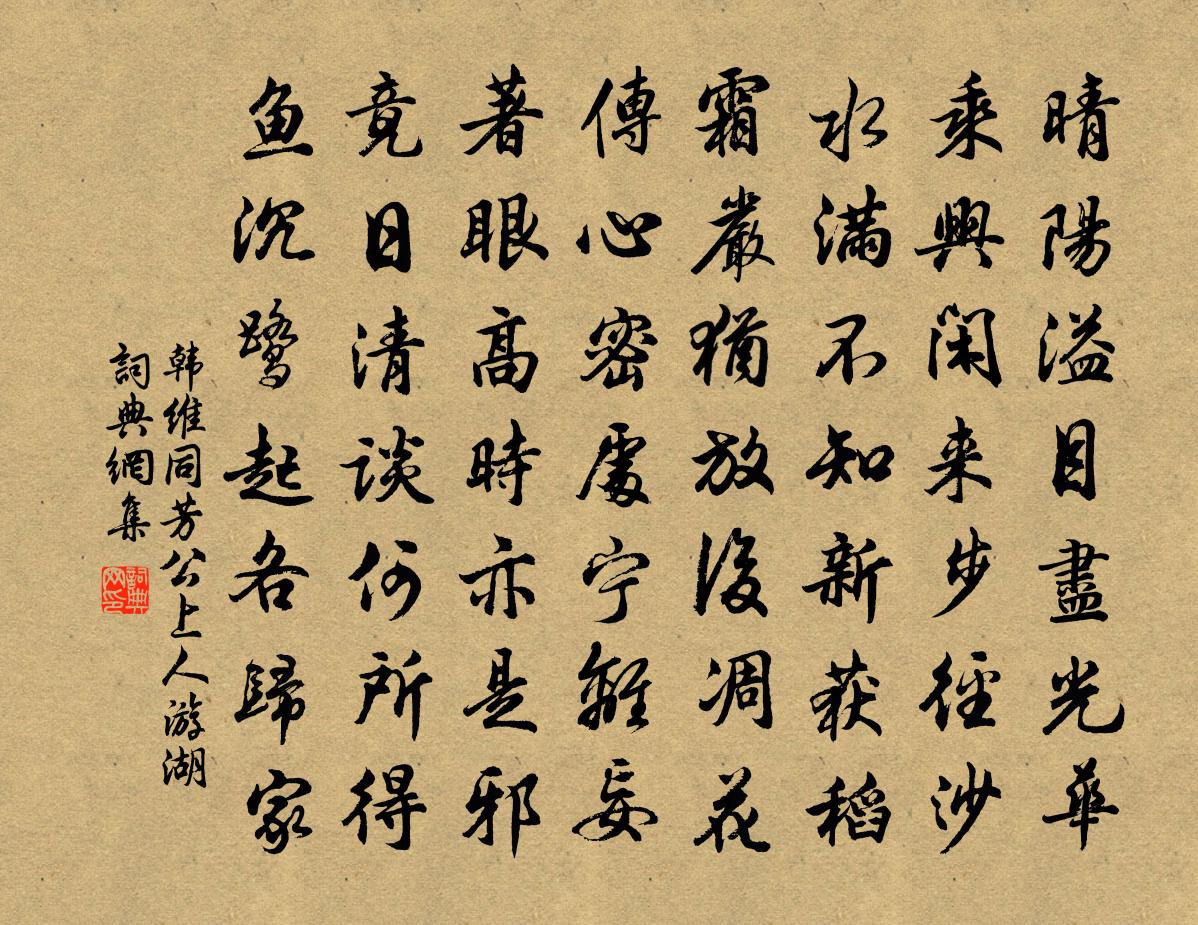 晴陽溢目盡光華
乘興閑来步徑沙
水滿不知新获稻
霜嚴猶放後凋花
傳心密處宁離妄
著眼高時亦是邪
竟日清談何所得
鱼沉鹭起各歸家
韩维同芳公上人游湖
詞典網集
詞典网印